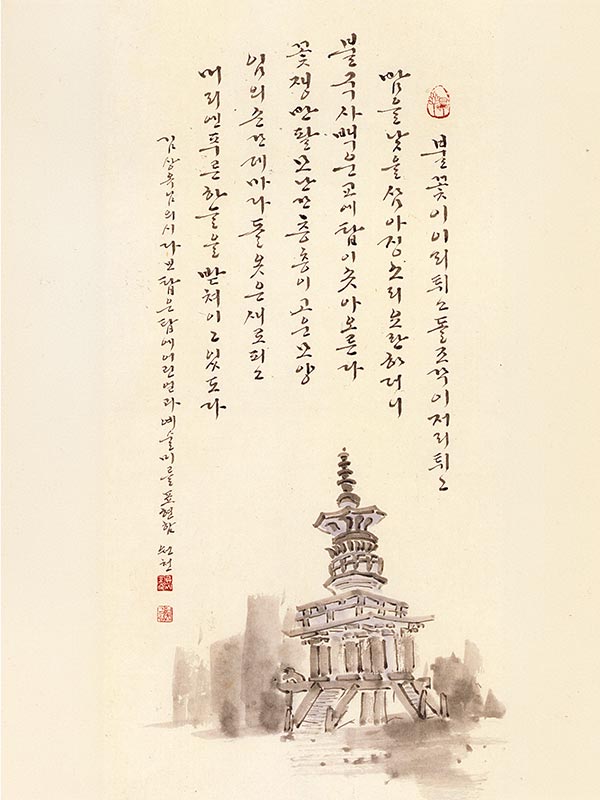 불꽃이 이리 튀고 돌조각이 저리 튀고
밤을 낮을 삼아 정소리 요란하더니
불국사 백운교에 탑이 솟아오른다
꽃쟁반 팔모난간 층층이 고운 모양
임의 손 간 데마다 돌옷은 새로 피고
머리엔 푸른 하늘을 받쳐 이고 있도다
김상옥님의 시 다보탑은 탑에 어린 연과 예술미를 표현함